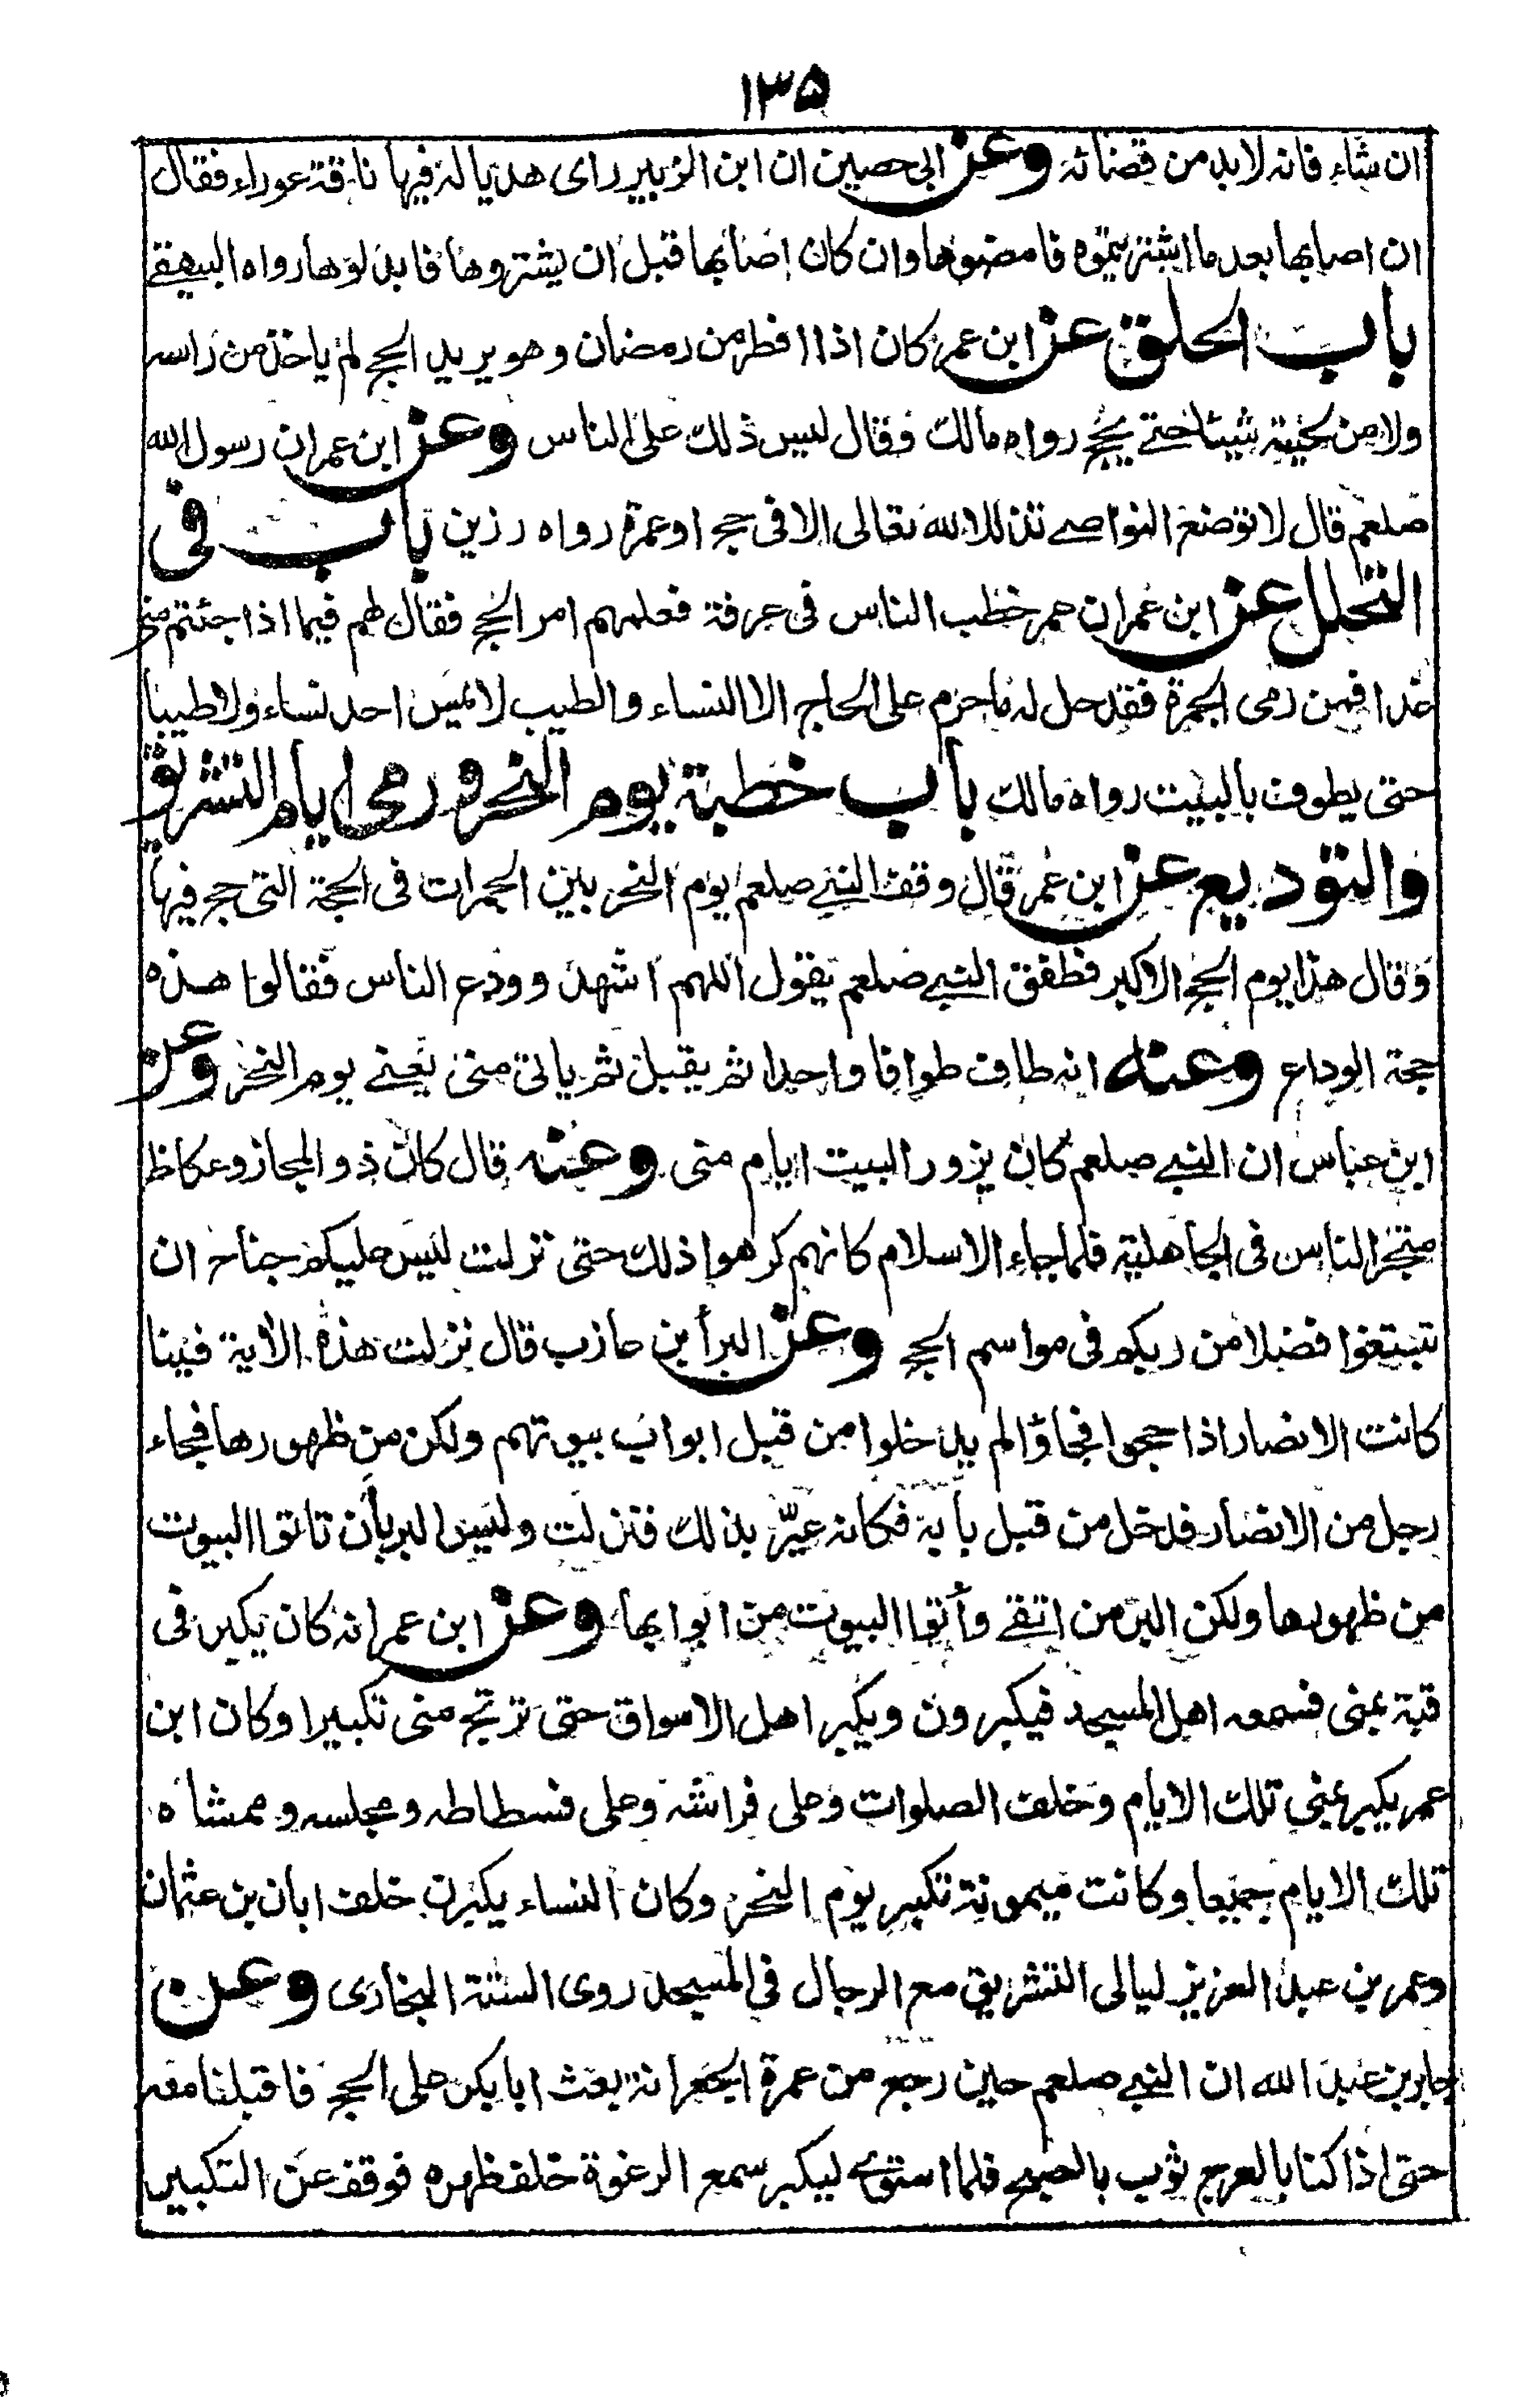 ١٣٥
ان شاء فانه لابد من قضائه وعن ابى حصين ان ابن الزبير راى هديا له فيها ناقة عوراء فقال
ان اصابها بعد ما اشتريتموه فامضوها وان كان اصابها قبل ان يشتروها فابدلوها رواه البيهقے
باب الحلق عن ابن عمر كان اذا افطر من رمضان وهو يريد الحج لم ياخذ من راسه
ولا من لحيته شيئا حتے يحج رواه مالك وقال ليس ذلك على الناس وعن ابن عمر ان رسول الله
صلعم قال لا توضع النواصے تذللا لله تعالى الا فى حج او عمرة رواه رزين باب فى
التحلل عن ابن عمر ان عمر خطب الناس فى عرفة فعلمهم امر الحج فقال لهم فيما اذا جئتم منى
غدا فمن رمى الجمرة فقد حل له ما حرم على الحاج الا النساء والطيب لا يمس احد نساء ولا طيبا
حتى يطوف بالبيت رواه مالك باب خطبة يوم النحر ورمى ايام التشريق
والتوديع عن ابن عمر قال وقف النبے صلعم يوم النحر بين الجمرات فى الحجة التى حج فيها
وقال هذا يوم الحج الاكبر فطفق النبے صلعم يقول اللهم اشهد وودع الناس فقالوا هذه
حجة الوداع وعنه انه طاف طوافا واحدا ثم يقبل ثم ياتى منى يعنے يوم النحر وعن
ابن عباس ان النبے صلعم كان يزور البيت ايام منى وعنه قال كان ذو المجاز وعكاظ
متجر الناس فى الجاهلية فلما جاء الاسلام كانهم كرهوا ذلك حتى نزلت ليس عليكم جناح ان
تبتغوا فضلا من ربكم فى مواسم الحج وعن البرأ بن عازب قال نزلت هذه الاية فينا
كانت الانصار اذا حجوا فجاؤا لم يدخلوا من قبل ابواب بيوتهم ولكن من ظهورها فجاء
رجل من الانصار فدخل من قبل بابه فكانه عيّر بذلك فنزلت وليس البر بأن تاتوا البيوت
من ظهورها ولكن البر من اتقے وأتوا البيوت من ابوابها وعن ابن عمر انه كان يكبر فى
قبة بمنى فسمعه اهل المسجد فيكبرون ويكبر اهل الاسواق حتى ترتج منى تكبيرا وكان ابن
عمر يكبر بمنى تلك الايام وخلف الصلوات وعلى فراشه وعلى فسطاطه ومجلسه وممشاه
تلك الايام جميعا وكانت ميمونة تكبر يوم النحر وكان النساء يكبرن خلف ابان بن عثمان
وعمر بن عبد العزيز ليالى التشريق مع الرجال فى المسجد روى الستة البخارى وعن
جابر بن عبد الله ان النبے صلعم حين رجع من عمرة الجعرانة بعث ابا بكر على الحج فاقبلنا معه
حتى اذا كنا بالعرج ثوب بالصبح فلما استوے ليكبر سمع الرغوة خلف ظهره فوقف عن التكبير